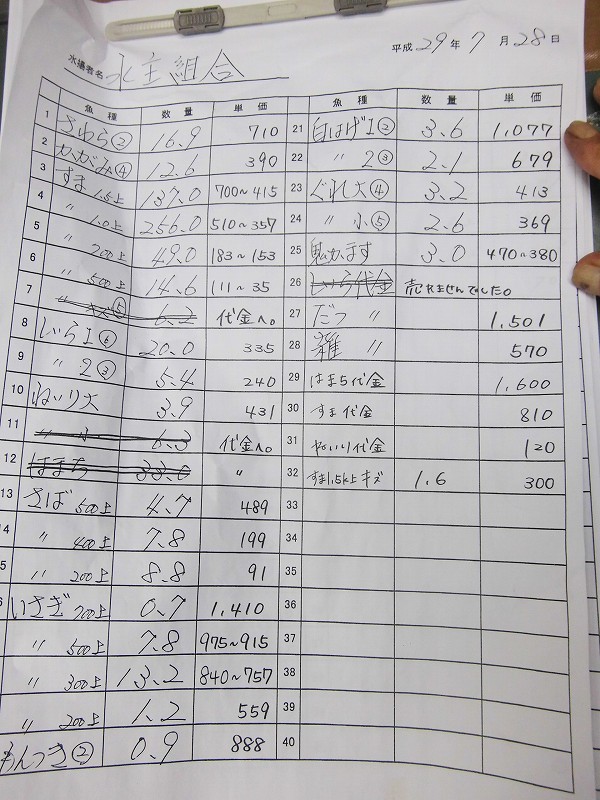 平成 29 年 7 月 28 日
水揚者名 永主組合
魚種 数量 単価
1 さわら② 16.9 710
2 かがみ④ 12.6 390
3 すま 1.5上 137.0 700~415
4 〃 1.0上 256.0 510~357
5 〃 700上 49.0 183~153
6 〃 500上 14.6 111~35
7 〃 キズ⑤ 6.2 代金へ。
8 しいら1⑥ 20.0 335
9 〃 2③ 5.4 240
10 ねいり大 3.9 431
11 〃 小 6.3 代金へ。
12 はまち 33.0 〃
13 さば 500上 4.7 489
4 〃 400上 7.8 199
5 〃 200上 8.8 91
いさぎ 700上 0.7 1,410
〃 500上 7.8 975~915
〃 300上 13.2 840~757
〃 200上 1.2 559
もんつき② 0.9 888
魚種 数量 単価
21 白はげ1② 3.6 1,077
22 〃 2③ 2.1 679
23 ぐれ大④ 3.2 413
24 〃 小⑤ 2.6 369
25 鬼かます 3.0 470~380
26 しいら代金 売れませんでした。
27 だつ 〃 1,501
28 雑 〃 570
29 はまち代金 1,600
30 すま代金 810
31 ねいり代金 120
32 すま1.5k上キズ 1.6 300
33
34
35
36
37
38
39
40